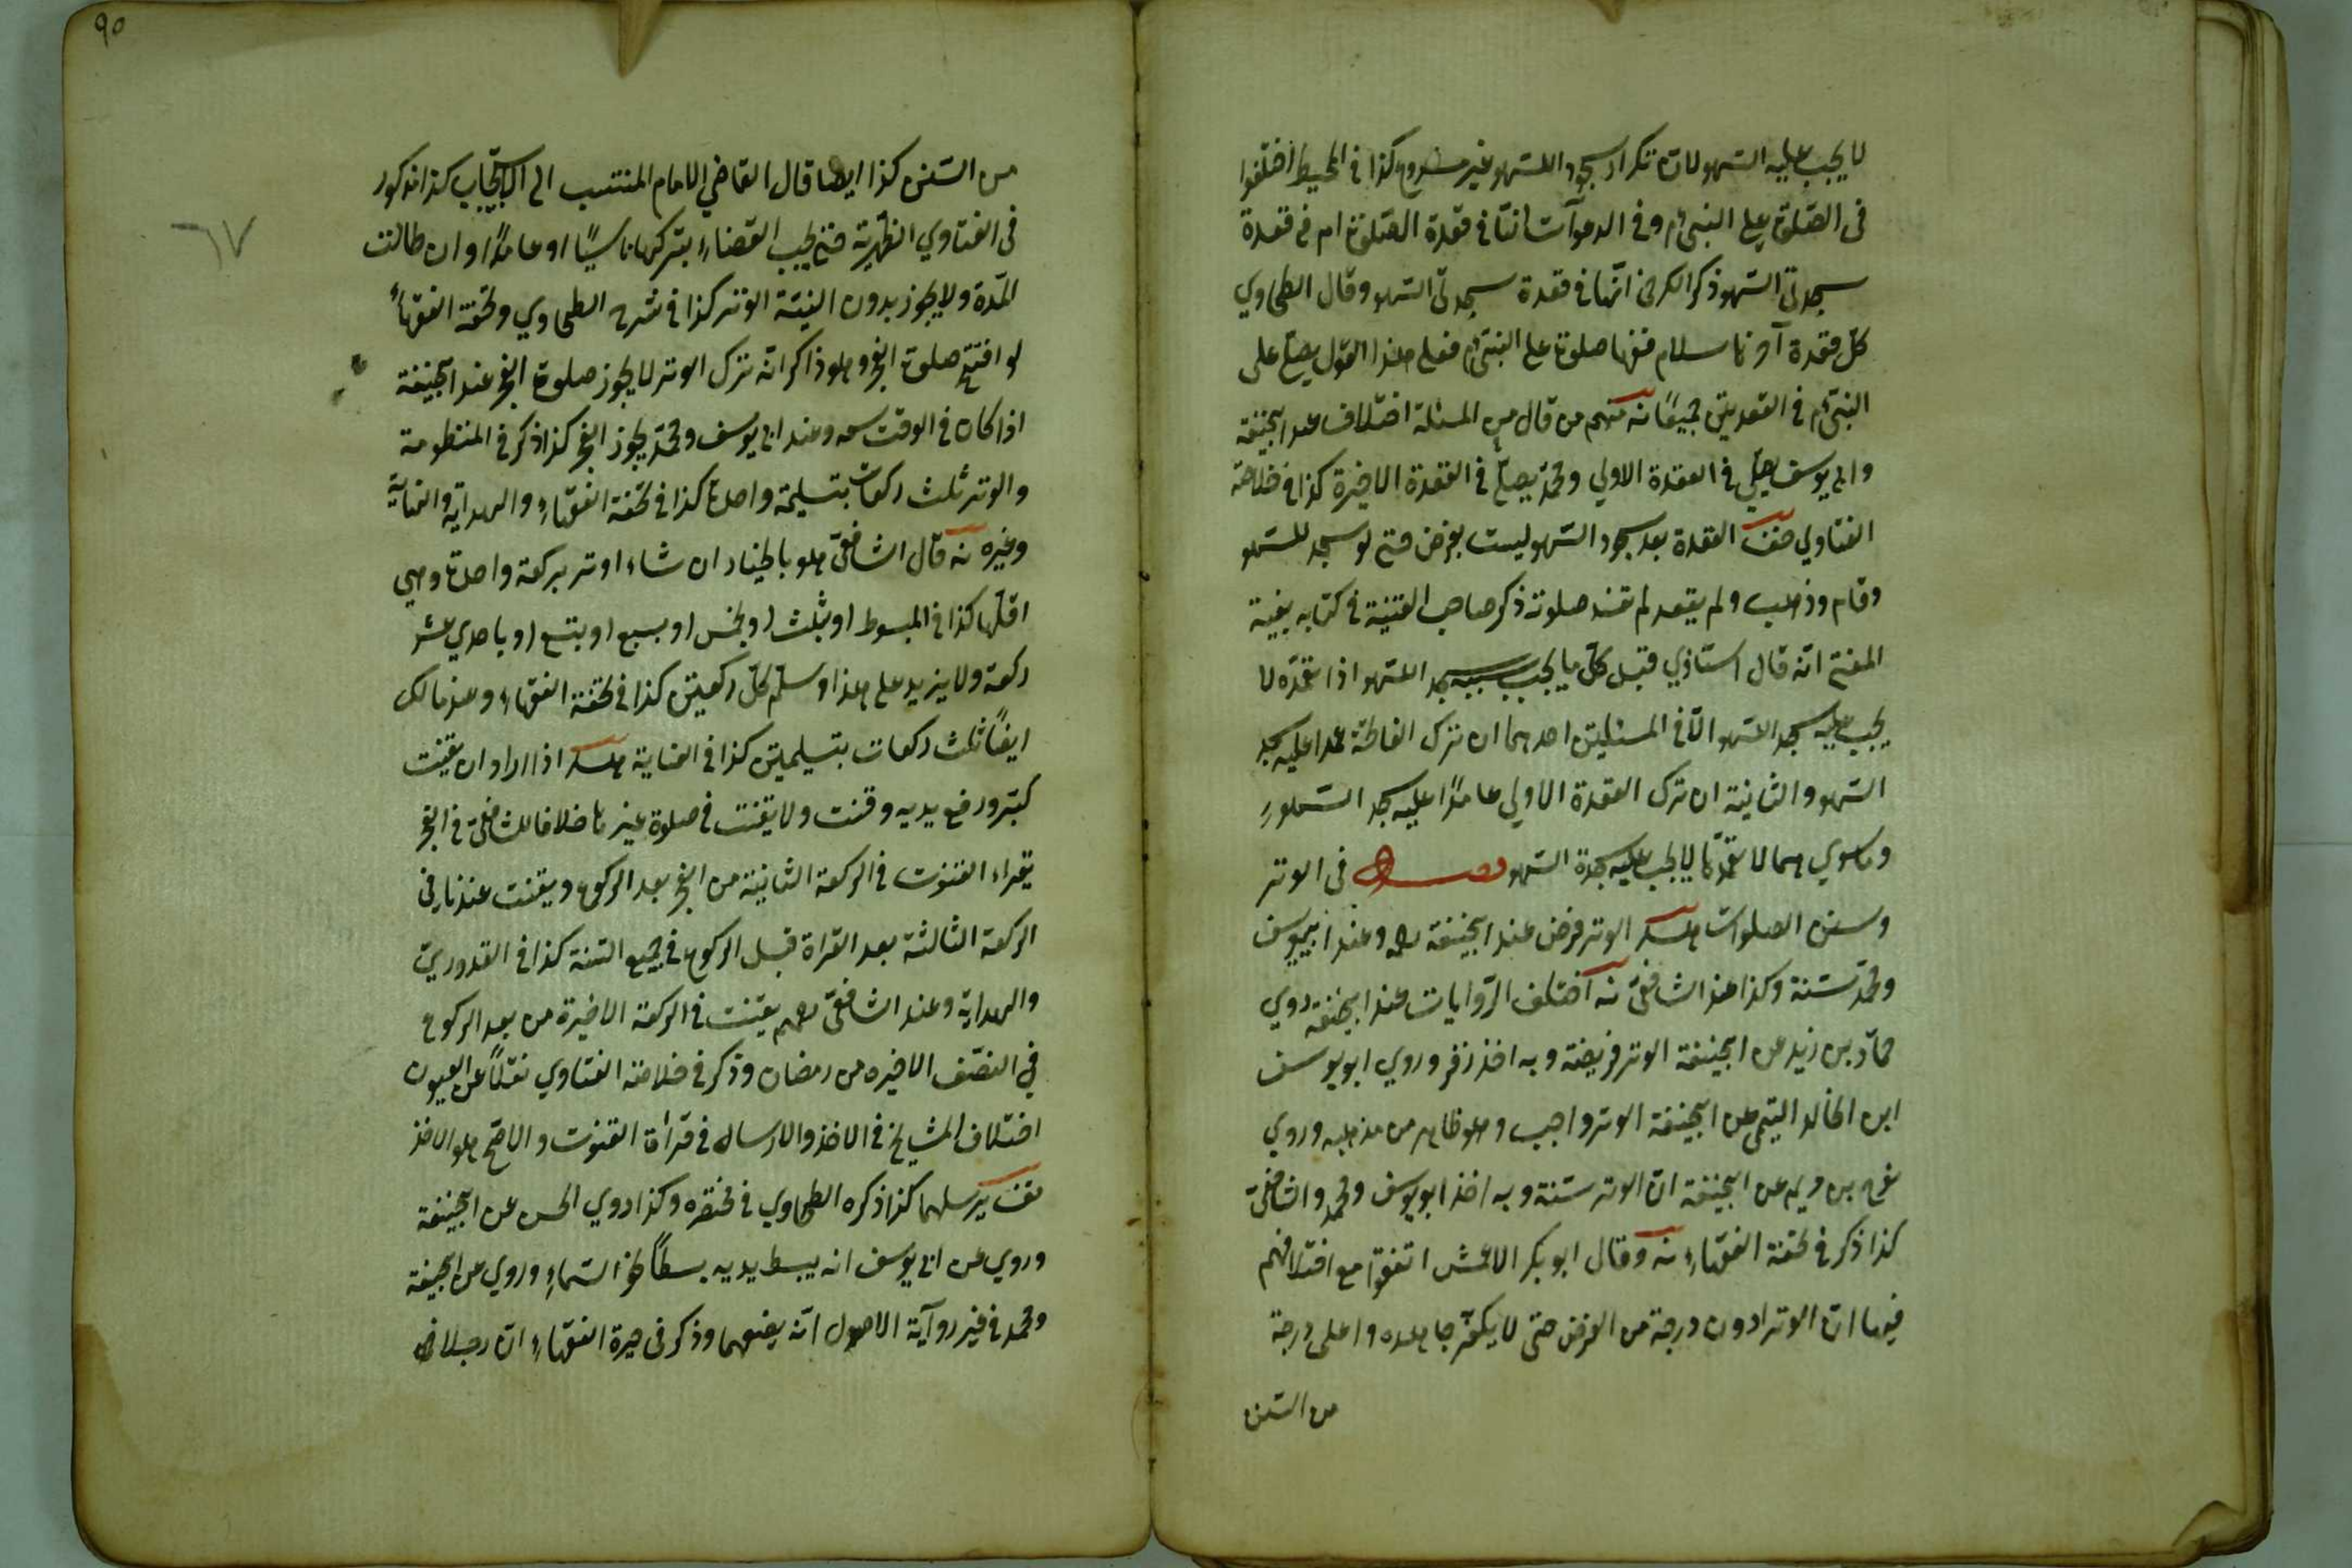 لا يجب عليه السهو لان تكرار سجود السهو غير مشروع كذا في المحيط اختلفوا
في الصلوة على النبي م وفي الدعوات انها في قعدة الصلوة ام في قعدة
سجدتي السهو ذكر الكرخي انها في قعدة سجدتي السهو وقال الطحاوي
كل قعدة آخرها سلام ففيها صلوة على النبي م فعلى هذا القول يصلي على
النبي م في القعدتين جميعًا نه منهم من قال في المسئلة اختلاف عند ابيحنيفة
وابي يوسف يصلي في القعدة الاولي ومحمد يصلي في القعدة الاخيرة كذا في خلاصة
الفتاوي القعدة بعد سجود السهو ليست بفرض حتى لو سجد للسهو
وقام وذهب ولم يقعد لم تفسد صلوته ذكر صاحب القنية في كتابه بغية
المفتي انه قال استاذي قبل كل ما يجب بسببه سجد السهو اذا تعمده لا
يجب عليه سجد السهو الا في المسئلتين احدهما ان ترك الفاتحة عمدا عليه سجد
السهو والثانية ان ترك القعدة الاولي عامدًا عليه سجد السهو
وما سوي هما لا تعمدًا لا يجب عليه سجدة السهو فصل في الوتر
وسنن الصلوات الوتر فرض عند ابيحنيفة رحمه وعند ابييوسف
ومحمد سنة وكذا عند الشافعي نه اختلف الروايات عند ابيحنيفة روي
حماد بن زيد عن ابيحنيفة الوتر فريضة وبه اخذ زفر وروي ابو يوسف
ابن الخالد التيمي عن ابيحنيفة الوتر واجب وهو ظاهر من مذهبه وروي
نوح بن مريم عن ابيحنيفة ان الوتر سنة وبه اخذ ابو يوسف ومحمد والشافعي
كذا ذكر في تحفة الفقهاء نه وقال ابو بكر الاعمش اتفقوا مع اختلافهم
فيها ان الوتر ادون درجة من الفرض حتى لا يكفر جاحده واعلى درجة
من السنن
٩٥
٦٧
من السنن كذا ايضا قال القاضي الامام المنتسب الى الاسبيجاب كذا مذكور
في الفتاوي الظهيرية حتى يجب القضاء بتركها ناسيًا او عامدًا وان طالت
المدة ولا يجوز بدون النية الوتر كذا في شرح الطحاوي وتحفة الفقهاء
لو افتتح صلوة الفجر وهو ذاكر انه ترك الوتر لا يجوز صلوة الفجر عند ابيحنيفة
اذا كان في الوقت سعه وعند ابي يوسف ومحمد يجوز الفجر كذا ذكر في المنظومة
والوتر ثلث ركعات بتسليمة واحدة كذا في تحفة الفقهاء والهداية والنهاية
وغيره نه قال الشافعي هو بالخيار ان شاء اوتر بركعة واحدة وهي
اقلها كذا في المبسوط او بثلث او بخمس او بسبع او بتسع او باحدي عشر
ركعة ولا يزيد على هذا وسلم كل ركعتين كذا في تحفة الفقهاء وعند مالك
ايضًا ثلث ركعات بتسليمتين كذا في النهاية اذا اراد ان يقنت
كبر ورفع يديه وقنت ولا يقنت في صلوة غيرها خلافا للشافعي في الفجر
يقراء القنوت في الركعة الثانية من الفجر بعد الركوع ويقنت عندنا في
الركعة الثالثة بعد القراة قبل الركوع في جميع السنة كذا في القدوري
والهداية وعند الشافعي رحمه يقنت في الركعة الاخيرة من بعد الركوع
في النصف الاخيره من رمضان وذكر في خلاصة الفتاوي نقلًا عن العيون
اختلاف المشايخ في الاخذ والارسال في قراءة القنوت والاصح هو الاخذ
يرسلهما كذا ذكره الطحاوي في مختصره وكذا روي الحسن عن ابيحنيفة
وروي عن ابي يوسف انه يبسط يديه بسطًا نحو السماء وروي عن ابيحنيفة
ومحمد في غير رواية الاصول انه يضعهما وذكر في حيرة الفقهاء ان رجلا